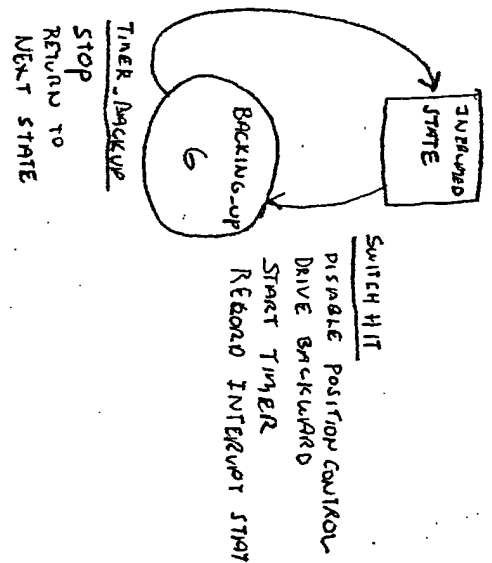 STATE
BACKING-UP
6
SWITCH HIT
DISABLE POSITION CONTROL
DRIVE BACKWARD
START TIMER
RECORD INTERUPT STAT
TIMER_BACKUP
STOP
RETURN TO
NEXT STATE